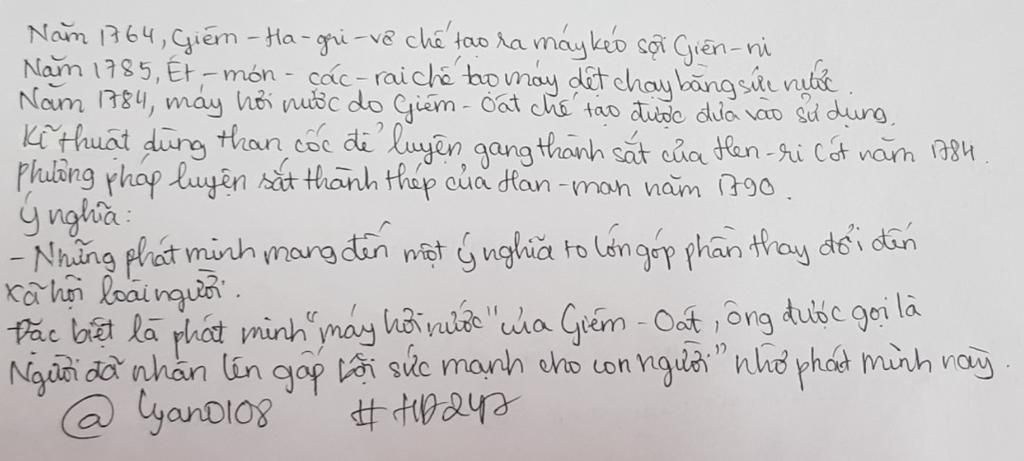 Năm 1764, Giêm-Ha-gri-vơ chế tạo ra máy kéo sợi Giên-ni
Năm 1785, Ét-mơn-các-rai chế tạo máy dệt chạy bằng sức nước.
Năm 1784, máy hơi nước do Giêm-Oát chế tạo được đưa vào sử dụng.
Kĩ thuật dùng than cốc để luyện gang thành sắt của Hen-ri Cót năm 1784.
Phương pháp luyện sắt thành thép của Han-man năm 1790.
Ý nghĩa:
- Những phát minh mang đến một ý nghĩa to lớn góp phần thay đổi đến
xã hội loài người.
Đặc biệt là phát minh "máy hơi nước" của Giêm-Oát, ông được gọi là
Người đã nhân lên gấp bội sức mạnh cho con người" nhờ phát minh này.
@ Cyan0108 #HD247